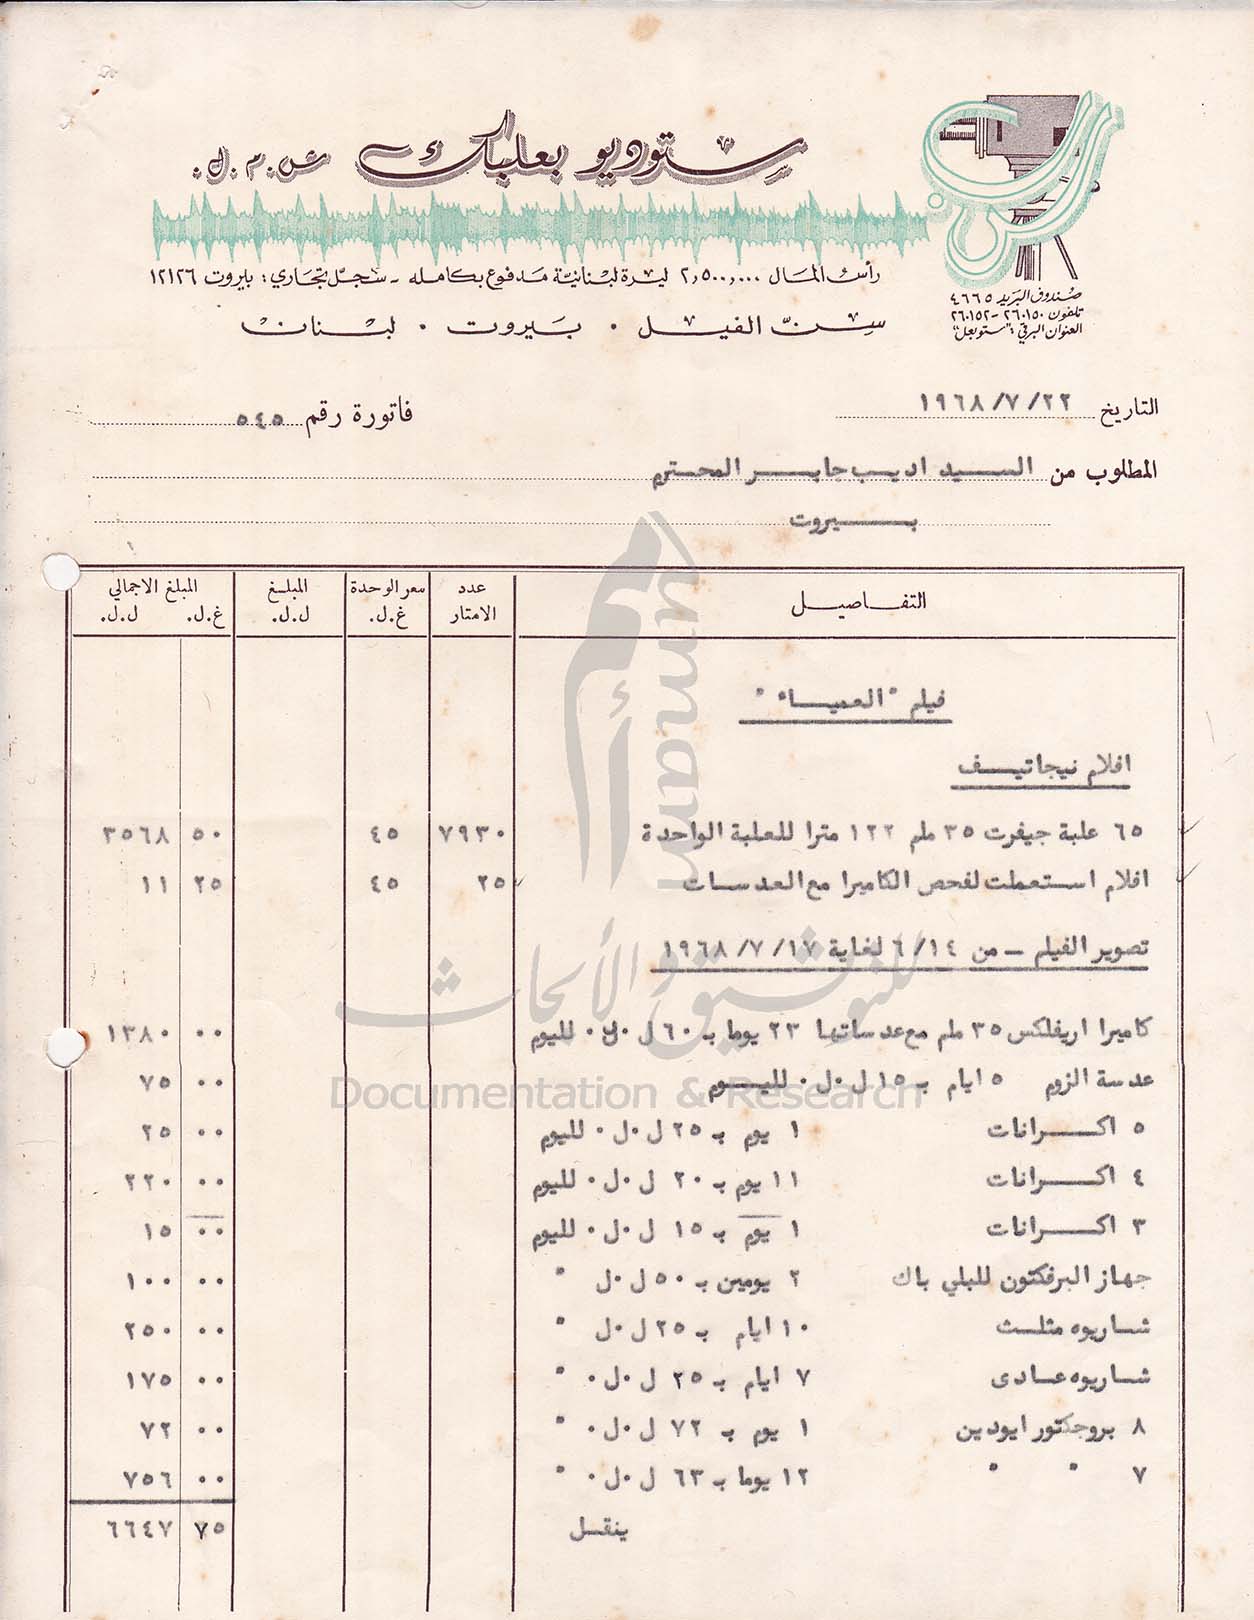 ستوديو بعلبك ش.م.ل.
رأس المال ٢,٥٠٠,٠٠٠ ليرة لبنانية مدفوع بكامله - سجل تجاري: بيروت ١٢١٢٦
سن الفيل · بيروت · لبنان
صندوق البريد ٤٦٦٥
تلفون ٢٦٠١٥٠-٢٦٠١٥٢
العنوان البرقي: "ستوبعل"
التاريخ ٢٢/٧/١٩٦٨
فاتورة رقم ٥٤٥
المطلوب من السيد اديب جابر المحترم
بيروت
التفاصيل عدد الامتار سعر الوحدة غ.ل. المبلغ ل.ل. المبلغ الاجمالي غ.ل. ل.ل.
فيلم "العمياء"
افلام نيجاتيف
٦٥ علبة جيفرت ٣٥ ملم ١٢٢ مترا للعلبة الواحدة ٧٩٣٠ ٤٥ ٥٠ ٣٥٦٨
افلام استعملت لفحص الكاميرا مع العدسات ٢٥ ٤٥ ٢٥ ١١
تصوير الفيلم - من ٦/١٤ لغاية ١٩٦٨/٧/١٧
كاميرا اريفلكس ٣٥ ملم مع عدساتها ٢٣ يوما بـ ٦٠ ل.ل. لليوم ٠٠ ١٣٨٠
عدسة الزوم ٥ ايام بـ ١٥ ل.ل. لليوم ٠٠ ٧٥
٥ اكرانات ١ يوم بـ ٢٥ ل.ل. لليوم ٠٠ ٢٥
٤ اكرانات ١١ يوم بـ ٢٠ ل.ل. لليوم ٠٠ ٢٢٠
٣ اكرانات ١ يوم بـ ١٥ ل.ل. لليوم ٠٠ ١٥
جهاز البرفكتون للبلي باك ٢ يومين بـ ٥٠ ل.ل " ٠٠ ١٠٠
شاريوه مثلث ١٠ ايام بـ ٢٥ ل.ل " ٠٠ ٢٥٠
شاريوه عادى ٧ ايام بـ ٢٥ ل.ل. " ٠٠ ١٧٥
٨ بروجكتور ايودين ١ يوم بـ ٧٢ ل.ل. " ٠٠ ٧٢
٧ " " ١٢ يوما بـ ٦٣ ل.ل. " ٠٠ ٧٥٦
ينقل ٧٥ ٦٦٤٧
أمم
umam
للتوثيق و الأبحاث
Documentation & Research